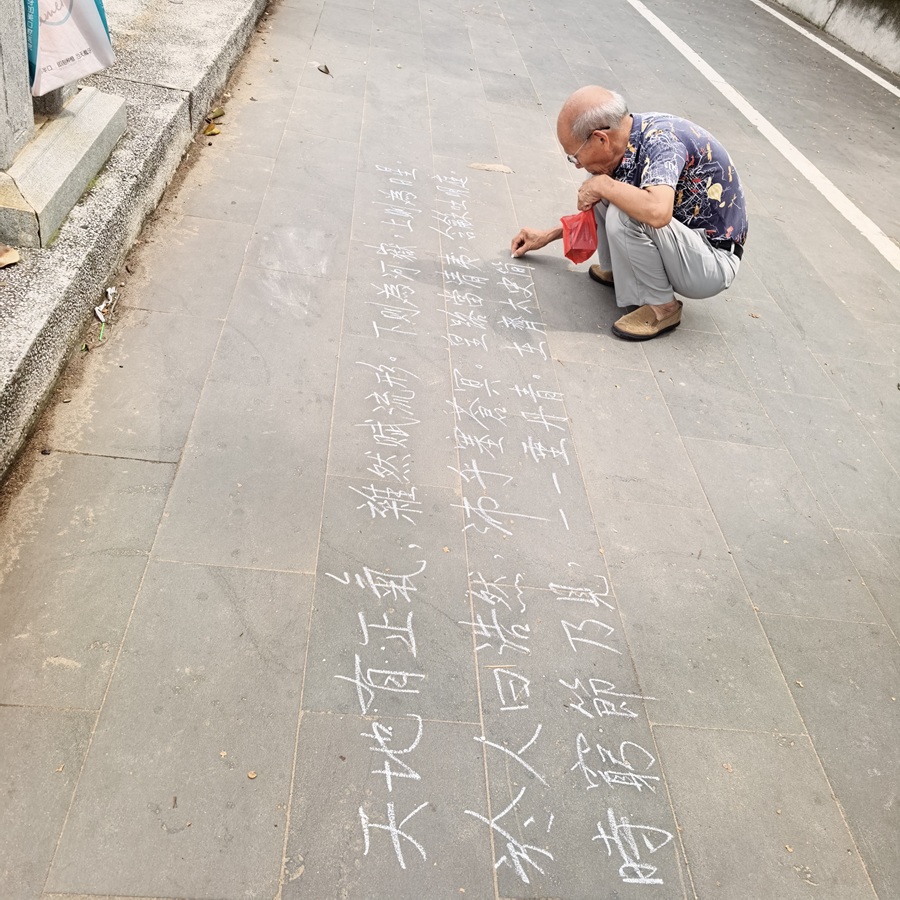 天地有正氣，雜然賦流形。下則為河嶽，上則為日星。
於人曰浩然，沛乎塞蒼冥。皇路當清夷，含
時窮節乃見，一一垂丹青。在齊太史